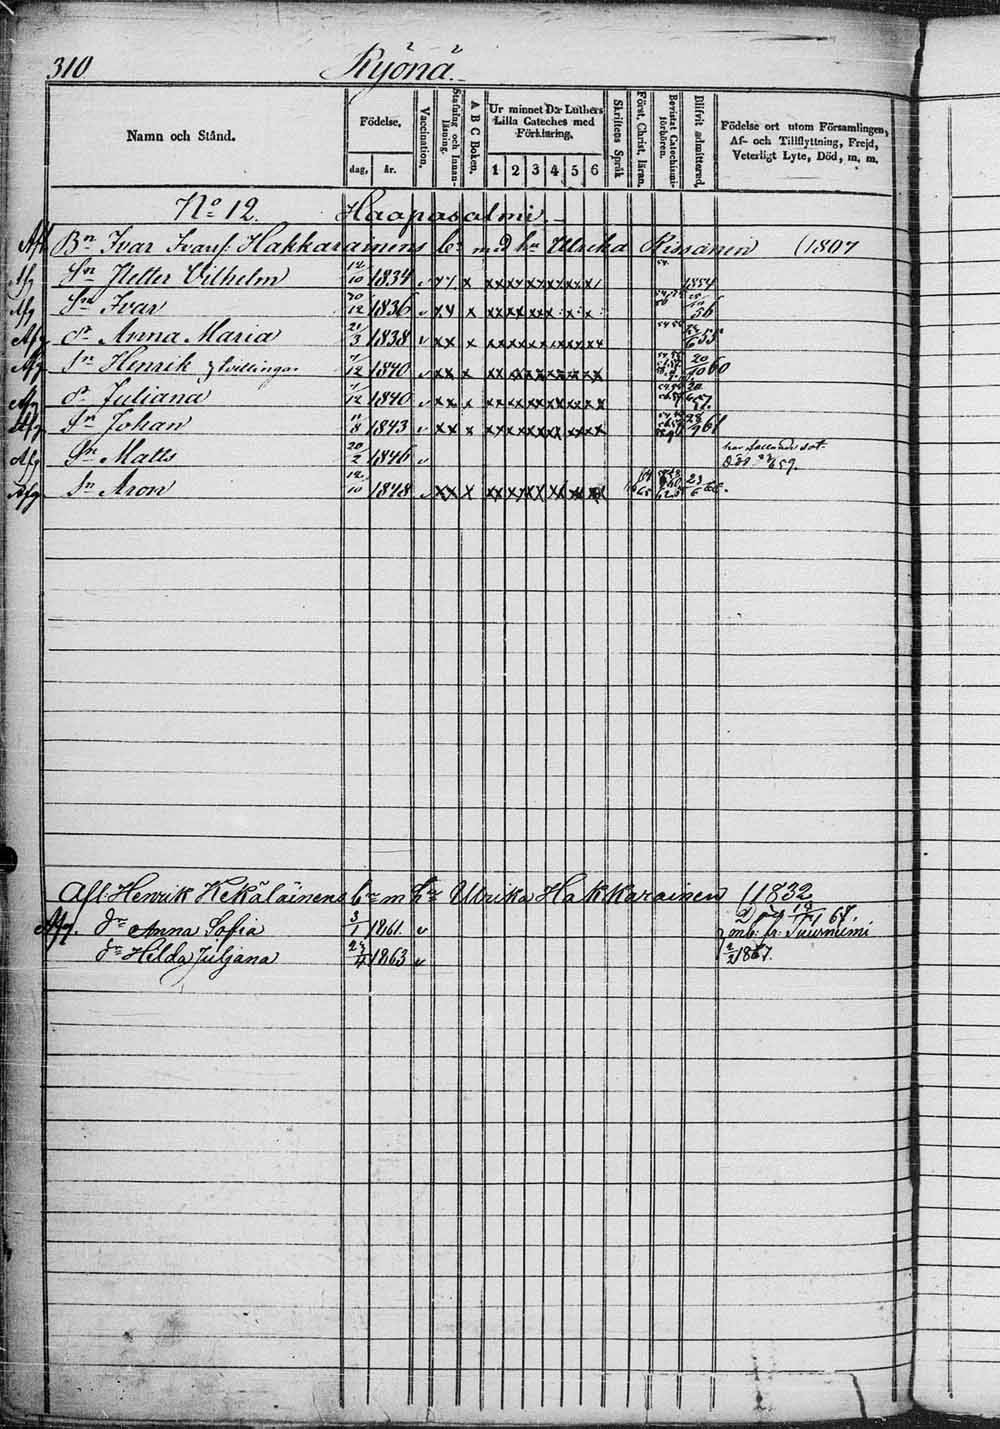 310 Kyönä.
Namn och Stånd. Födelse, dag, år. Vaccination. Stafning och Innanläsning. A B C Boken. Ur minnet D:r Luthers Lilla Cateches med Förklaring. 1 2 3 4 5 6 Skriftens Språk Först. Christ. läran. Bevistat Catechismi-förhören. Blifvit admitterad. Födelse ort utom Församlingen, Af- och Tillflyttning, Frejd, Veterligt Lyte, Död, m. m.
No 12. Haapasalmi.
Bn Ivar Ivarss: Hakkarainens br med hu Ulrika Kissanen (1807
Afg Sn Petter Vilhelm 12/10 1834 v x x x x x x x x x 1854
Afg Sn Ivar 20/12 1836 v x x x x x x x 56
Afg Dr Anna Maria 21/3 1838 v x x x x x x x x x
Afg Sn Henrik } tvillingar 1/12 1840 v x x x x x x x x x 20/10 60
Afg Dr Juliana 1/12 1840 v x x x x x x x x x
Afg Sn Johan 11/8 1843 v x x x x x x x x x 28/9 61
Afg Sn Matts 20/2 1846 v har fallande sot
Död 59.
Afg Sn Aron 12/10 1848 v x x x x x x x x x 23/6
Afl. Henrik Kekäläinens br m hu Ulrika Hakkarainen (1832
Afg. dr Anna Sofia 3/1 1861. v 67.
dr Hilda Juljana 24/4 1863 v 2/2 1867.